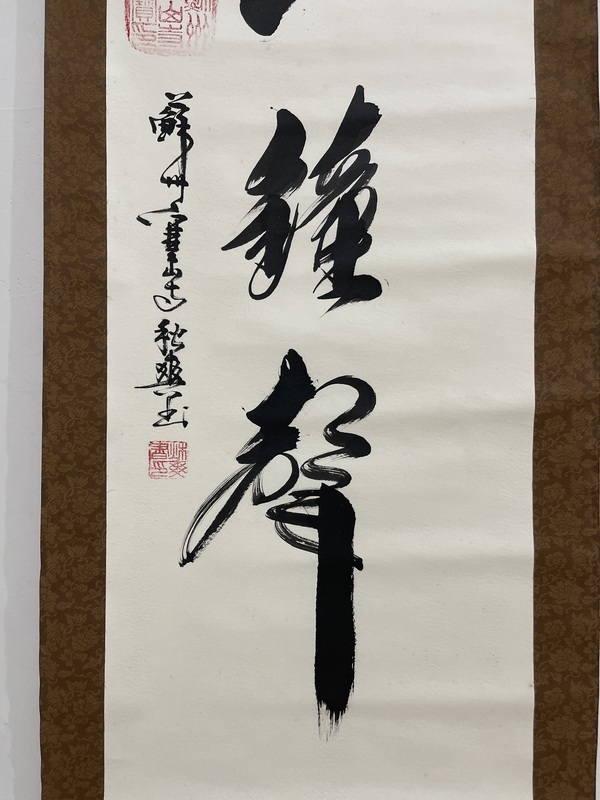 鐘聲
蘇州寒山寺秋爽書